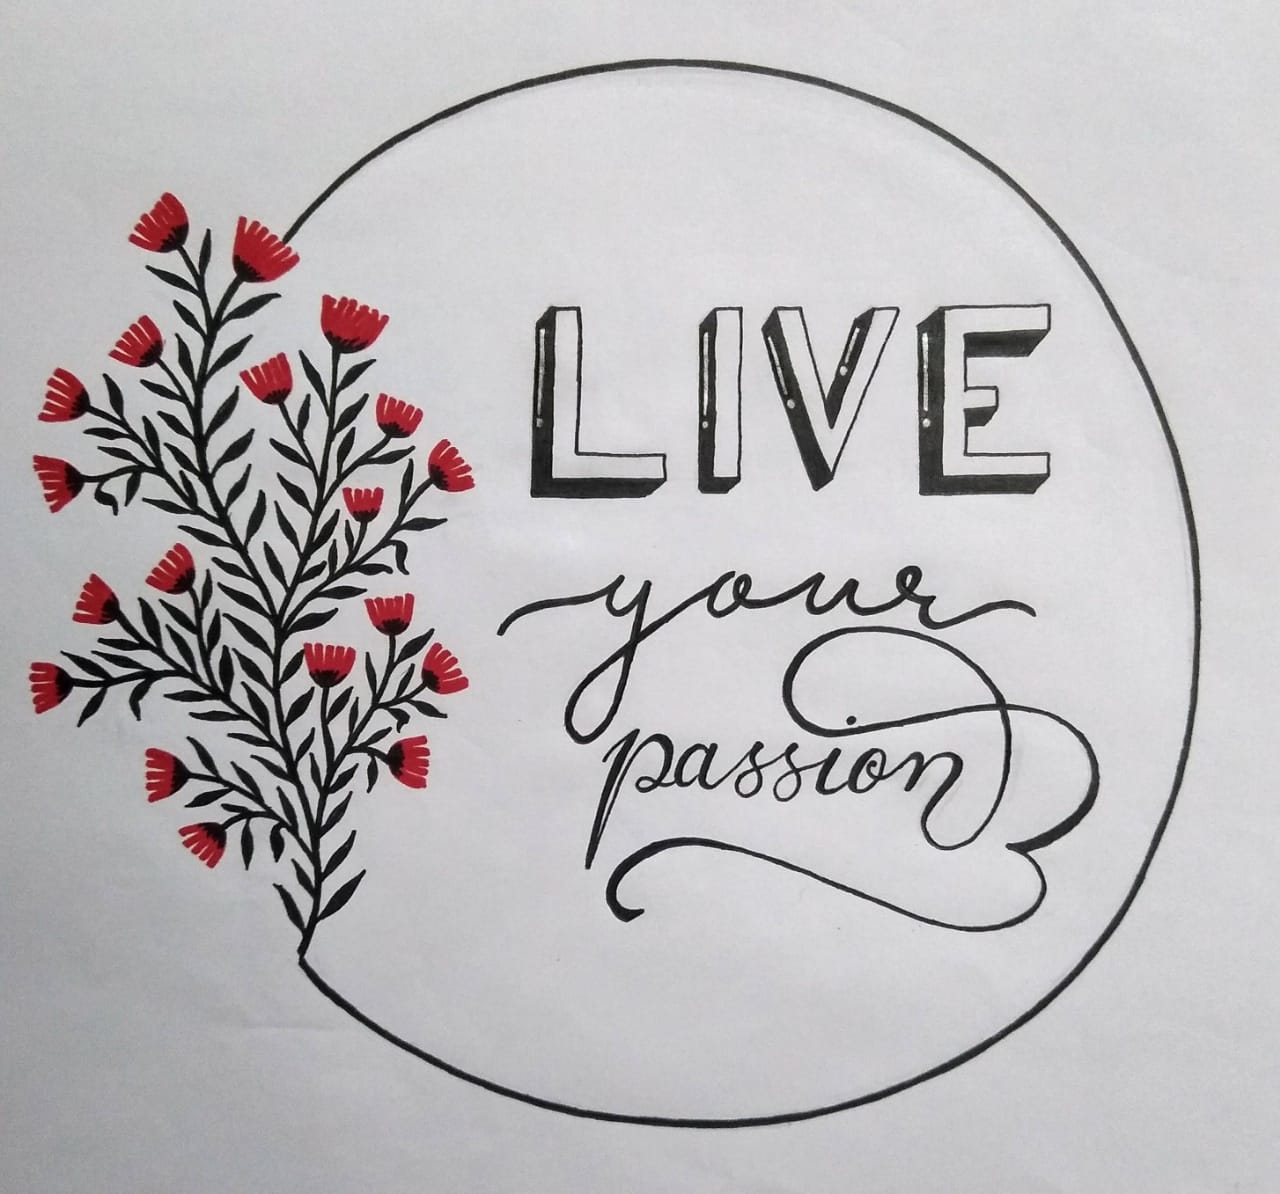 LIVE
your
passion